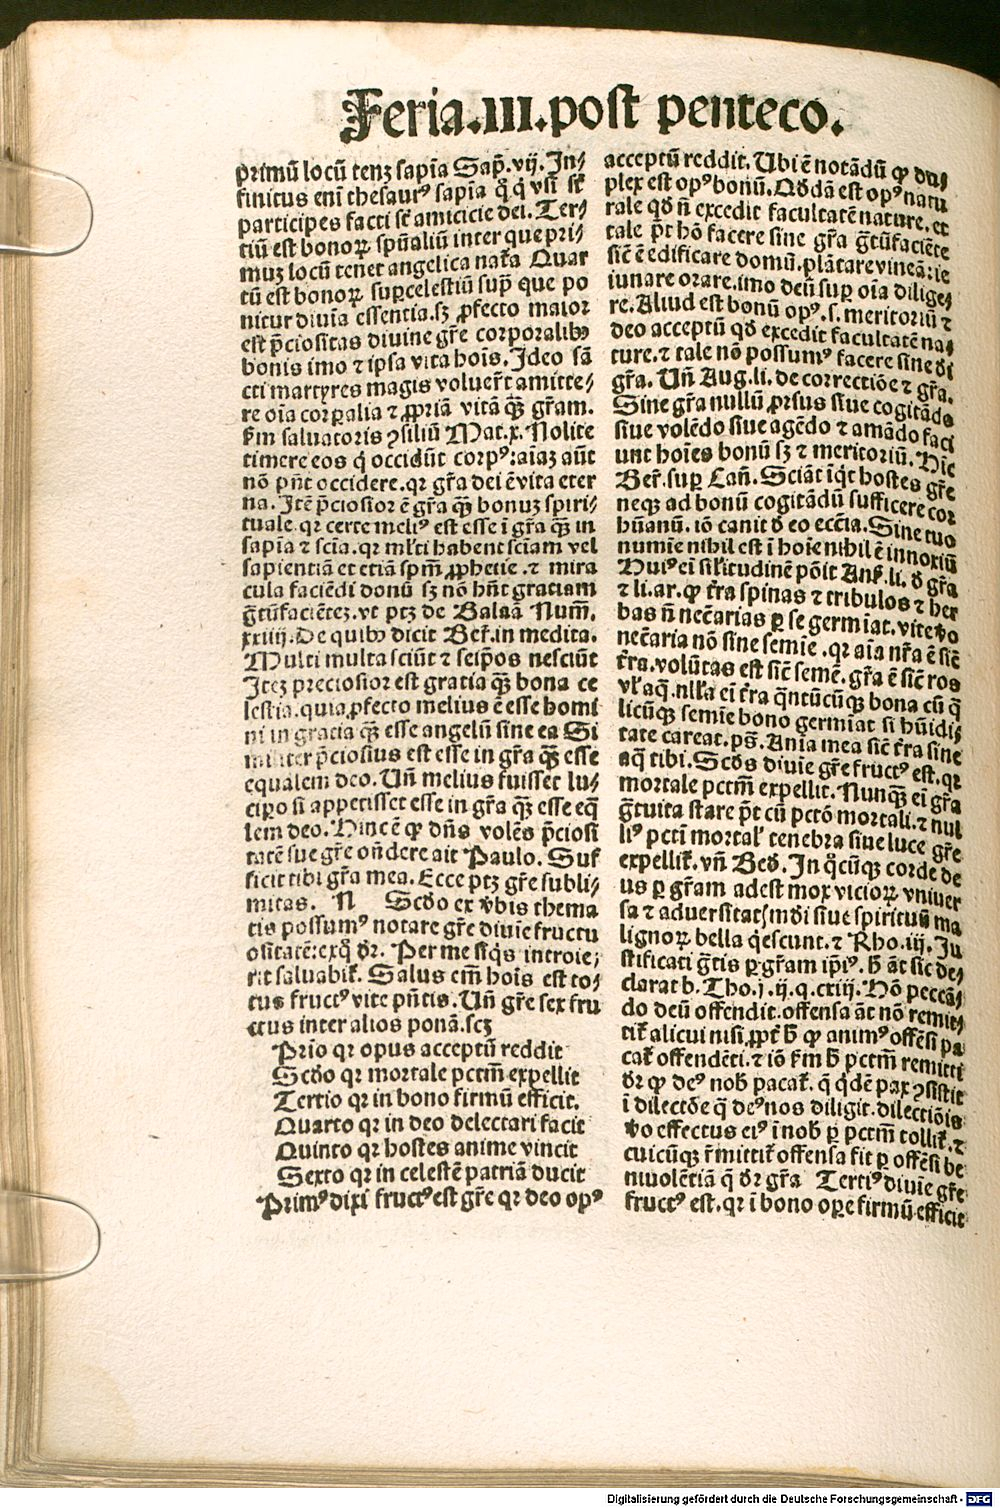 Feria.III.post penteco.
primū locū tenꝫ sapīa Sap̄. vij. In⸗
finitus enī thesaurꝰ sapīa q̊ q̇ vsi st̄
participes facti st̄ amicicie dei. Ter⸗
tiū est bonoꝝ spūaliū inter que pri⸗
muꝫ locū tenet angelica nat̄a Quar
tū est bonoꝝ suꝑcelestiū sup̄ que po
nitur diuīa essentia.sꝫ ꝓfecto maior
est p̄ciositas diuine gr̄e corporalibꝰ
bonis imo ⁊ ipsa vita hoīs. Ideo sā
cti martyres magis voluer̄t amitte⸗
re oīa corꝑalia ⁊ ꝓpriā vitā qꝫ̄ gr̄am.
fm̄ saluatoris ꝯsiliū Mat.x. Nolite
timere eos q̇ occidūt corpꝰ:aīaꝫ aūt
nō pn̄t occidere.qꝛ gr̄a dei ē vita eter
na. Itē p̄ciosior ē gr̄a qꝫ̄ bonuꝫ spiri⸗
tuale.qꝛ certe meliꝰ est esse ī gr̄a qꝫ̄ in
sapīa ⁊ scīa.qꝛ ml̄ti habent sciam vel
sapientiā et etiā spm̄ ꝓphetie .⁊ mira
cula faciēdi donū sꝫ nō hn̄t gratiam
gr̄tūfaciēteꝫ.vt ptꝫ de Balaā Num̄.
xxiiij. De quibꝰ dicit Ber̄.in medita.
Multi multa sciūt ⁊ seip̄os nesciūt
Iteꝫ preciosior est gratia qꝫ̄ bona ce
lestia.quia ꝓfecto melius ē esse homi
ni in gracia qꝫ̄ esse angelū sine ea Si
militer p̄ciosius est esse in gr̄a qꝫ̄ esse
equalem deo. Un̄ melius fuisset lu⸗
cipo si appetisset esse in gr̄a qꝫ̄ esse eq̄
lem deo. Hinc ē ꝙ dn̄s volēs p̄ciosi
tatē sue gr̄e on̄dere ait Paulo. Suf
ficit tibi gr̄a mea. Ecce ptꝫ gr̄e subli⸗
mitas. N Scd̄o ex v̄bis thema
tis possumꝰ notare gr̄e diuīe fructu
ositatē:exq̊ dr̄. Per me siq̇s introie⸗
rit saluabit̄. Salus em̄ hoīs est to⸗
tus fructꝰ vite pn̄tis. Un̄ gr̄e sex fru
ctus inter alios ponā.scꝫ
Prīo qꝛ opus acceptū reddit
Scd̄o qꝛ mortale pctm̄ expellit
Tertio qꝛ in bono firmū efficit.
Quarto qꝛ in deo delectari facit
Quinto qꝛ hostes anime vincit
Sexto qꝛ in celestē patriā ducit
Primꝰ dixi fructꝰ est gr̄e qꝛ deo opꝰ
acceptū reddit. Ubi ē notādū ꝙ du⸗
plex est opꝰ bonū. Qd̄dā est opꝰ natu
rale qd̄ n̄ excedit facultatē nature. et
tale p̄t hō facere sine gr̄a gr̄tūfaciēte
sic̄ ē edificare domū.plātare vineā:ie
iunare orare.imo deū suꝑ oīa dilige⸗
re. Aliud est bonū opꝰ.s. meritoriū ⁊
deo acceptū qd̄ excedit facultatē na⸗
ture.⁊ tale nō possumꝰ facere sine di
gr̄a. Un̄ Aug.li. de correctiōe ⁊ gr̄a.
Sine gr̄a nullū ꝓrsus siue cogitādo
siue volēdo siue agēdo ⁊ amādo faci
unt hoīes bonū sꝫ ⁊ meritoriū. Hic
Ber̄. suꝑ Can̄. Sciāt īqt̄ hostes gr̄e
neqꝫ ad bonū cogitādū sufficere cor
hūanū. iō canit d̄ eo eccīa. Sine tuo
numīe nihil est ī hoīe nihil ē innoxiū
Huiꝰ ei sil̄itudinē pōit Ans̄. li. d̄ gr̄a
⁊ li.ar.ꝙ tr̄a spinas ⁊ tribulos ⁊ her
bas n̄ nec̄carias ꝑ se germīat. vite v̄o
nec̄aria nō sine semīe .qꝛ aīa nr̄a ē sic̄
tr̄a.volūtas est sic̄ semē. gr̄a ē sic̄ ros
vl̄ aq̄. nll̄a ei tr̄a q̄ntūcūqꝫ bona cū q̄
licūqꝫ semīe bono germīat si hūidi⸗
tate careat. ps̄. Anīa mea sic̄ tr̄a sine
aq̄ tibi. Scd̄s diuīe gr̄e fructꝰ est. qꝛ
mortale pctm̄ expellit. Nunqꝫ̄ ei gr̄a
gr̄tuita stare p̄t cū pctō mortali.⁊ nul
liꝰ pctī mortal̄ tenebra siue luce gr̄e
expellit̄. vn̄ Bed̄. In q̊cūqꝫ corde de
us ꝑ gr̄am adest mox vicioꝝ vniuer
sa ⁊ aduersitatꝭ mūdi siue spirituū ma
lignoꝝ bella q̇escunt. ⁊ Rho. iij. Iu
stificati gr̄tis ꝑ gr̄am ip̄iꝰ. h̄ āt sic de⸗
clarat b. Tho.j.ij.q.cxiij. Hō peccā⸗
do deū offendit.offensa āt nō remit⸗
tit̄ alicui nisi ꝓpt̄ h̄ ꝙ animꝰ offēsi pa
cat̄ offendēti.⁊ iō fm̄ h̄ pctm̄ remitti
dr̄ ꝙ deꝰ nob̄ pacat̄. q̄ q̇dē pax ꝯsistit
ī dilectōe q̄ deꝰ nos diligit.dilectiōis
v̄o effectus eiꝰ ī nob̄ ꝑ pctm̄ tollit̄. ⁊
cuicūqꝫ r̄mittit̄ offensa fit ꝑ offēsi be
niuolētiā q̄ dr̄ gr̄a Tertiꝰ diuīe gr̄e
fructꝰ est. qꝛ ī bono oꝑe firmū efficit
Digitalisierung gefördert durch die Deutsche Forschungsgemeinschaft - DFG